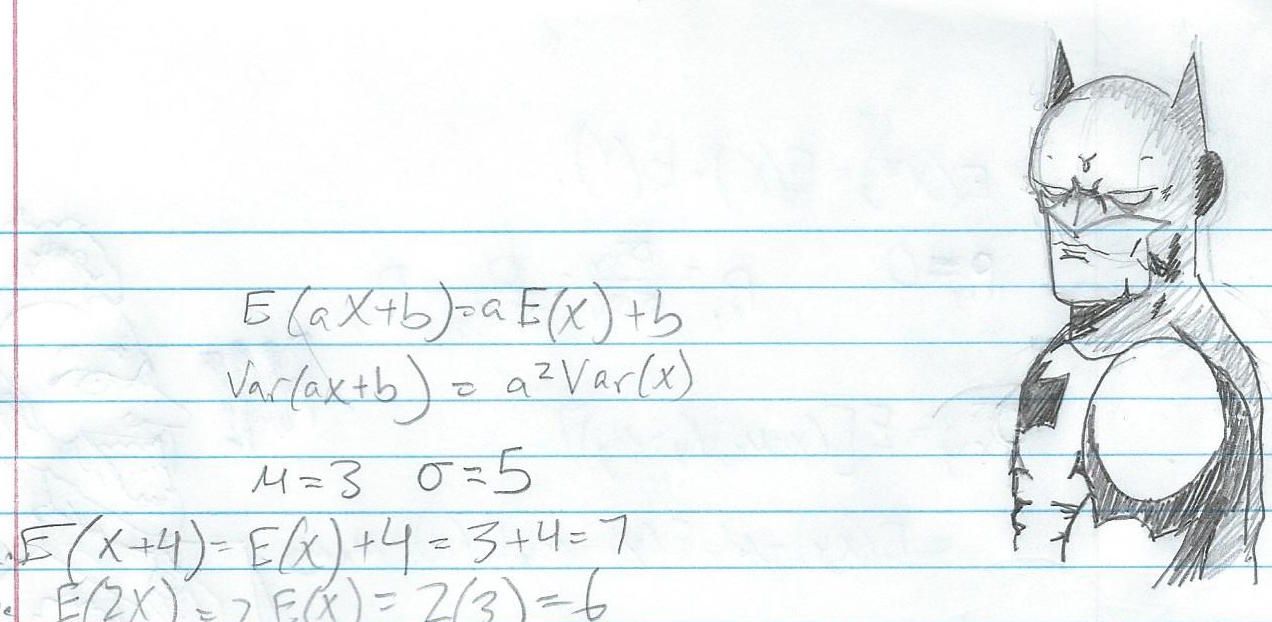 E(aX+b)=aE(X)+b
Var(ax+b) = a²Var(x)
μ=3 σ=5
E(X+4)=E(X)+4=3+4=7
E(2X)=2E(X)=2(3)=6